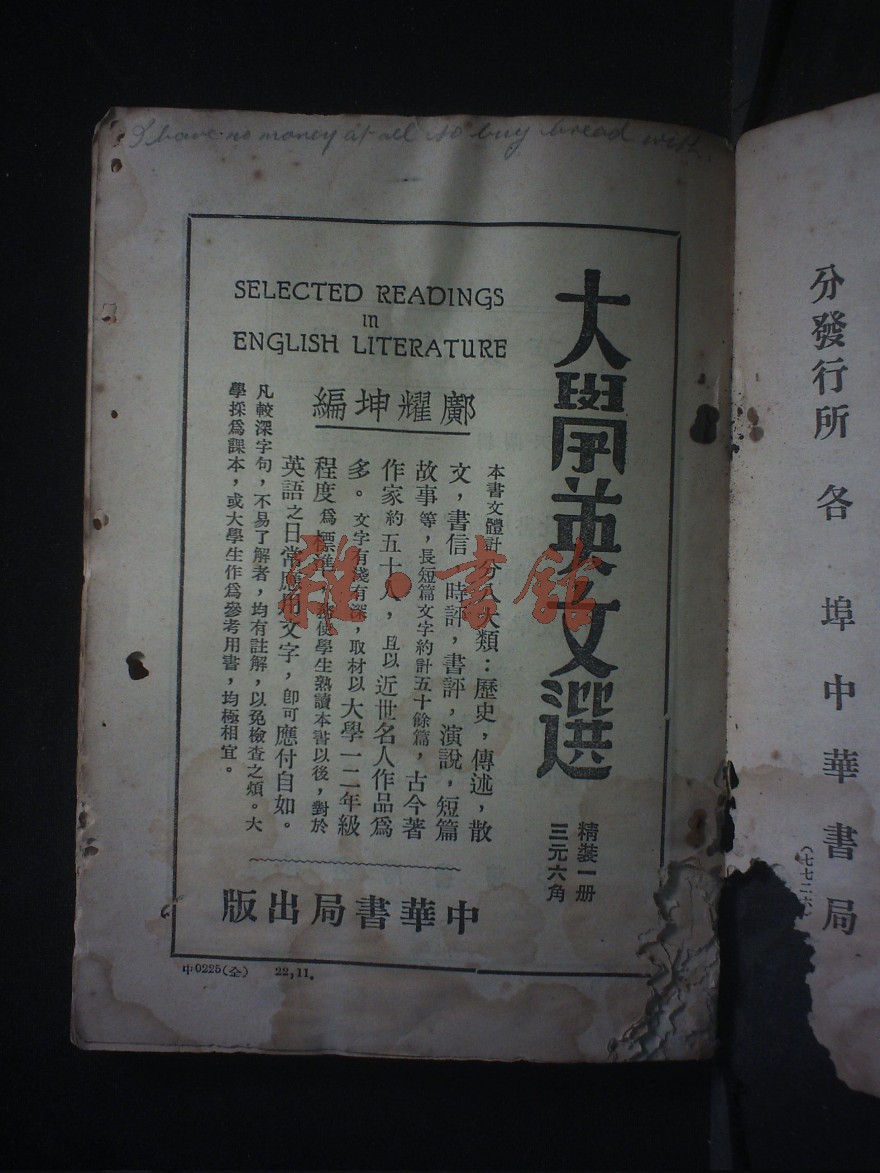 I have no money at all to buy bread with
分發行所 各埠中華書局
(七七二六)
大學英文選
精裝一册
三元六角
SELECTED READINGS
in
ENGLISH LITERATURE
鄺耀坤編
本書文體計分八大類：歷史，傳述，散
文，書信，時評，書評，演說，短篇
故事等，長短篇文字約計五十餘篇，古今著
作家約五十人，且以近世名人作品爲
多。文字有淺有深，取材以大學一二年級
程度爲標準，務使學生熟讀本書以後，對於
英語之日常應用文字，卽可應付自如。
凡較深字句，不易了解者，均有註解，以免檢查之煩。大
學採爲課本，或大學生作爲參考用書，均極相宜。
中華書局出版
中0225(全) 22,11.
雜·書館